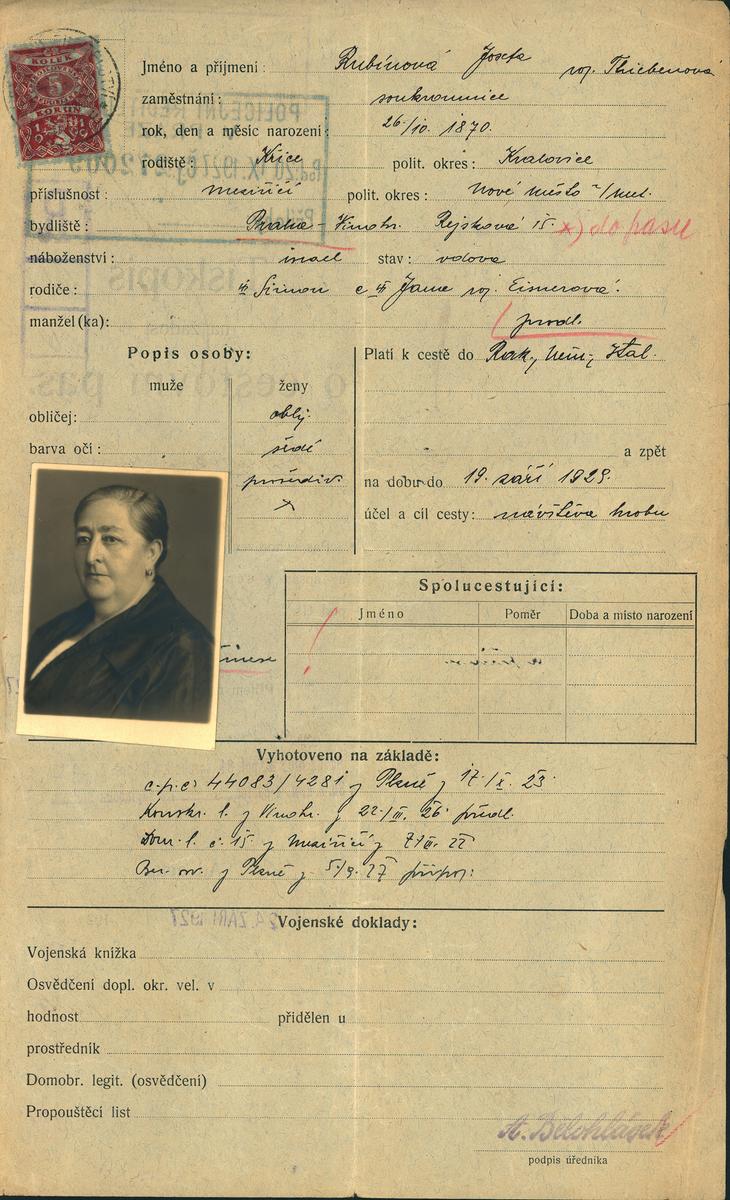 KOLEK
5
KORUN
1919
Jméno a příjmení: Rubínová Josefa roz. Thiebenová
zaměstnání: soukromnice
rok, den a měsíc narození: 26/10. 1870.
rodiště: Kříce polit. okres: Kralovice
příslušnost: Meziříčí polit. okres: Nové Město n/Met.
bydliště: Praha - Vinohr. Rejskova 15. x) do pasu
náboženství: israel stav: vdova
rodiče: Simon Jana roz. Eisnerová.
manžel (ka): prodl.
Popis osoby:
muže ženy
obličej: oblý
barva očí: šedé
prošediv.
Platí k cestě do Rak., Něm., Ital.
a zpět
na dobu do 19. září 1929.
účel a cíl cesty: návštěva hrobu
Spolucestující:
Jméno Poměr Doba a místo narození
Vyhotoveno na základě:
c. p. č. 44083/4281 z Plzně z 17/X. 23.
Konskr. l. z Vinohr. z 22/III. 26. předl.
Dom. l. č. 15 z Meziříčí z
z Plzně z 5/9. 27 připoj.
24. ZÁŘÍ 1927
Vojenské doklady:
Vojenská knížka
Osvědčení dopl. okr. vel. v
hodnost přidělen u
prostředník
Domobr. legit. (osvědčení)
Propouštěcí list
A. Bělohlásek
podpis úředníka